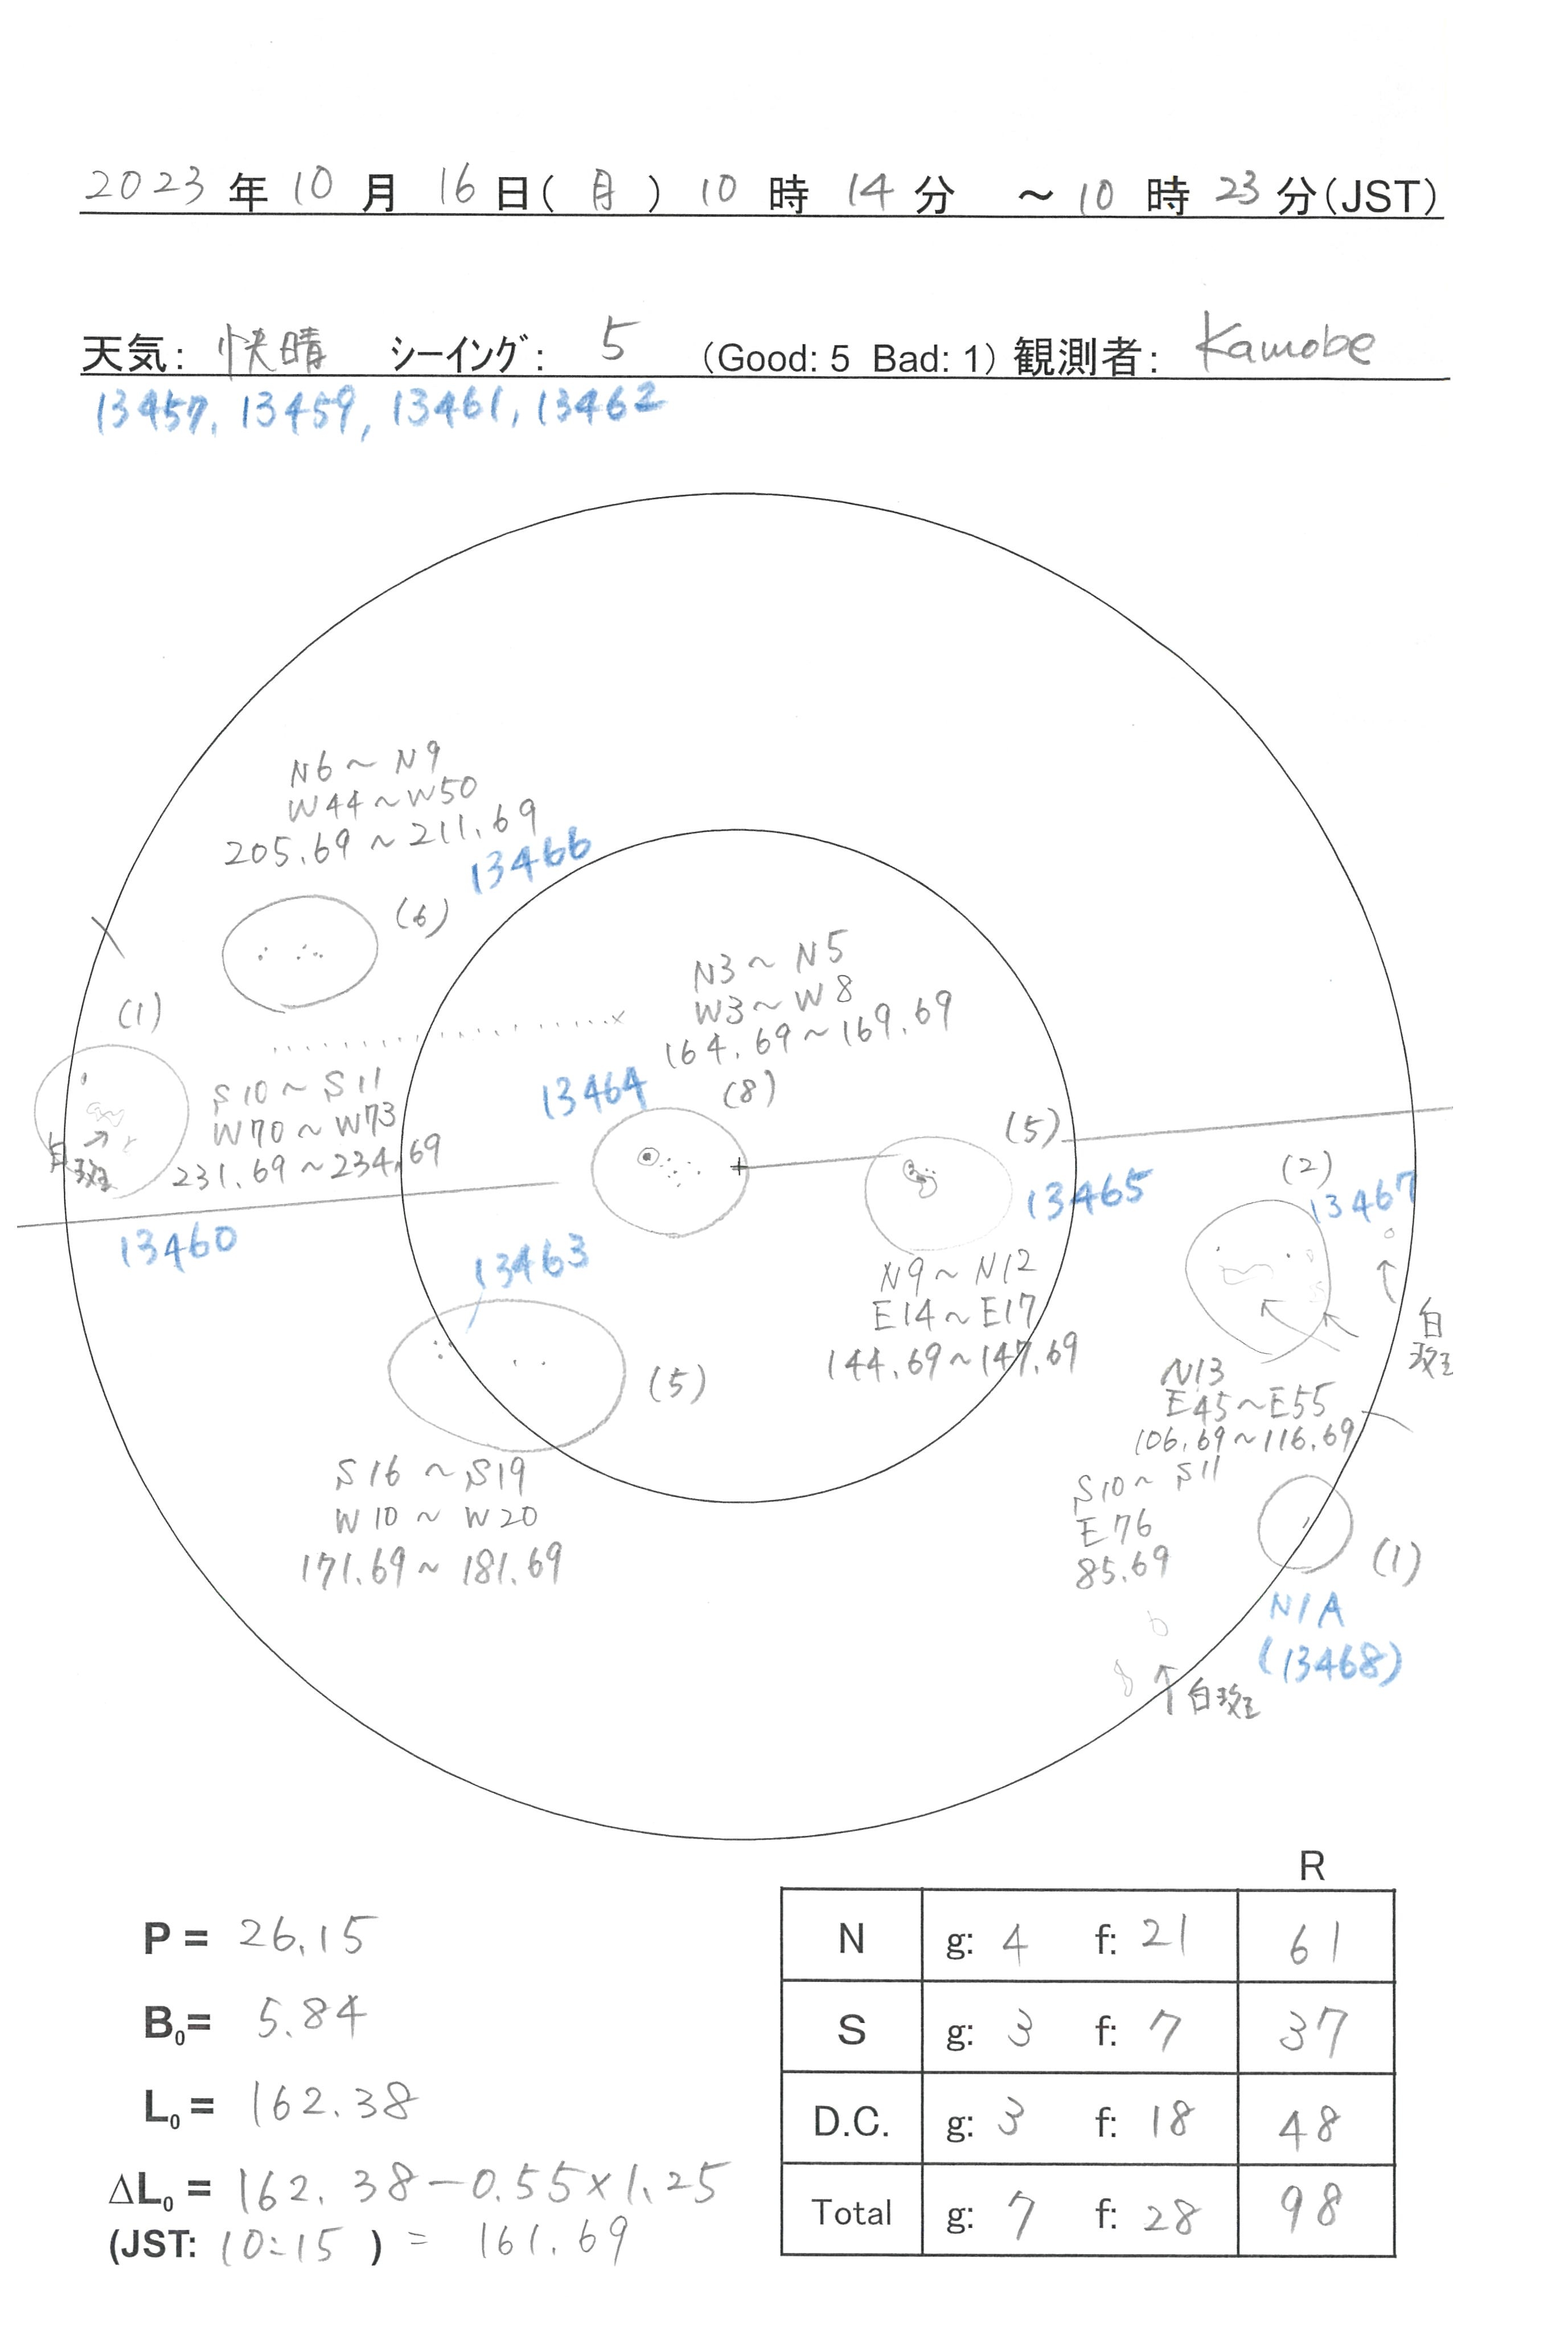 2023 年 10 月 16 日(月) 10 時 14 分 ～ 10 時 23 分(JST)
天気: 快晴 シーイング: 5 (Good: 5 Bad: 1) 観測者: Kamobe
13457, 13459, 13461, 13462
N6～N9
W44～W50
205.69～211.69
13466
(6)
N3～N5
W3～W8
164.69～169.69
(8)
13464
(1)
S10～S11
W70～W73
231.69～234.69
白斑
13460
(5)
13465
N9～N12
E14～E17
144.69～147.69
(2)
13467
白斑
N13
E45～E55
106.69～116.69
13463
(5)
S16～S19
W10～W20
171.69～181.69
S10～S11
E76
85.69
(1)
N/A
(13468)
白斑
R
P = 26.15
B0= 5.84
L0= 162.38
ΔL0= 162.38-0.55×1.25
(JST: 10:15 ) = 161.69
N g: 4 f: 21 61
S g: 3 f: 7 37
D.C. g: 3 f: 18 48
Total g: 7 f: 28 98